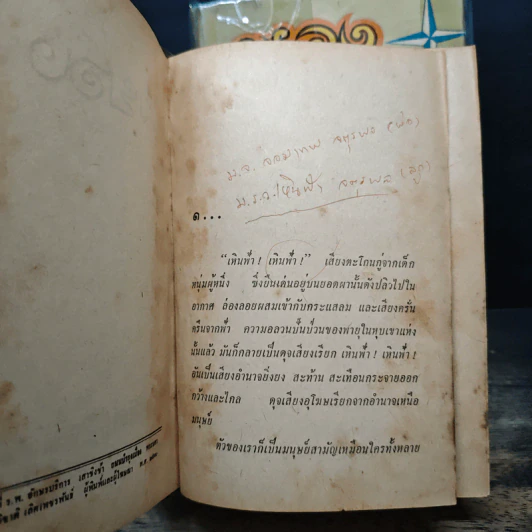 ม.จ. จอมเทพ จตุรพล (พ่อ)
ม.ร.ว. เหินฟ้า จตุรพล (ลูก)
๑...
"เหินฟ้า ! เหินฟ้า !" เสียงตะโกนกู่จากเด็ก
หนุ่มผู้หนึ่ง ซึ่งยืนเด่นอยู่บนยอดผานั้นดังปลิวไปใน
อากาศ ล่องลอยผสมเข้ากับกระแสลม และเสียงครั่น
ครืนจากฟ้า ความอลวนปั่นป่วนของพายุในหุบเขาแห่ง
นั้นแล้ว มันก็กลายเป็นดุจเสียงเรียก เหินฟ้า ! เหินฟ้า !
อันเป็นเสียงอำนาจยิ่งยง สะท้าน สะเทือนกระจายออก
กว้างและไกล ดุจเสียงอุโฆษเรียกจากอำนาจเหนือ
มนุษย์
ตัวของเราก็เป็นมนุษย์สามัญเหมือนใครทั้งหลาย
ร.พ. อักษรบริการ เสาชิงช้า
ผู้พิมพ์และผู้โฆษณา